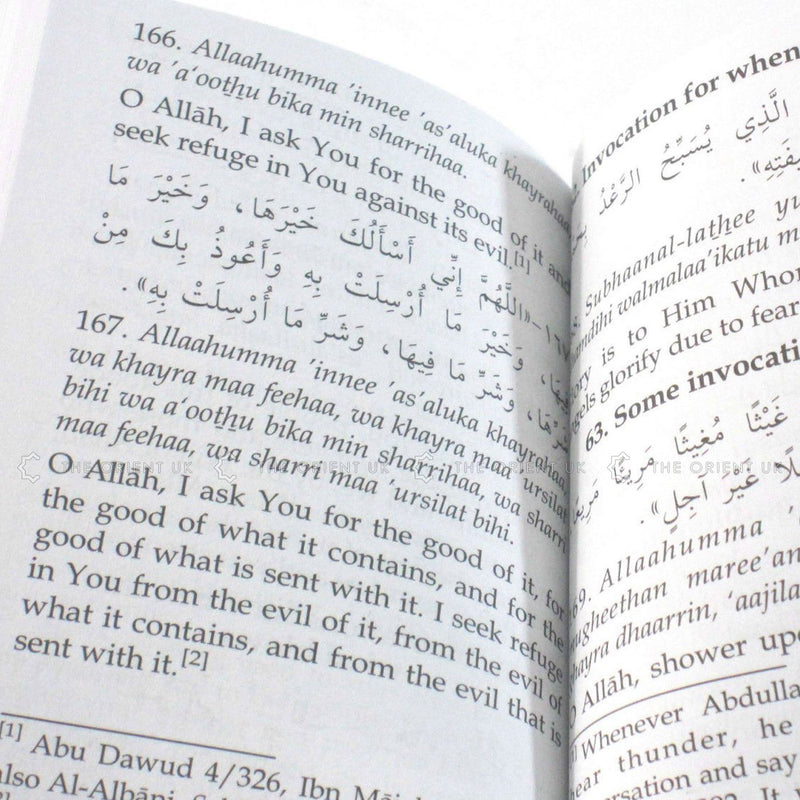 166. Allaahumma 'innee 'as'aluka khayrahaa
wa 'a'oothu bika min sharrihaa.
O Allāh, I ask You for the good of it and
seek refuge in You against its evil.[1]
١٦٧-«اللَّهُمَّ إِنِّي أَسْأَلُكَ خَيْرَهَا، وَخَيْرَ مَا
فِيهَا، وَخَيْرَ مَا أُرْسِلَتْ بِهِ وَأَعُوذُ بِكَ مِنْ
شَرِّهَا، وَشَرِّ مَا فِيهَا، وَشَرِّ مَا أُرْسِلَتْ بِهِ».
167. Allaahumma 'innee 'as'aluka khayrahaa,
wa khayra maa feehaa, wa khayra maa 'ursilat
bihi wa a'oothu bika min sharrihaa, wa sharri
maa feehaa, wa sharri maa 'ursilat bihi.
O Allāh, I ask You for the good of it, for
the good of what it contains, and for the
good of what is sent with it. I seek refuge
in You from the evil of it, from the evil of
what it contains, and from the evil that is
sent with it.[2]
[1] Abu Dawud 4/326, Ibn
also Al-Albāni,
Invocation for when
الَّذِي يُسَبِّحُ الرَّعْدُ
Subhaanal-lathee
walmalaa'ikatu
is to Him Whom
glorify due to fear
63. Some
غَيْثًا مُغِيثًا مَرِيئًا
غَيْرَ آجِلٍ».
Allaahumma
mugheethan maree'an
dhaarrin, 'aajila
O Allāh, shower
Whenever Abdulla
hear thunder, he
and say
It
THE ORIENT UK THE ORIENT UK THE ORIENT UK THE ORIENT UK